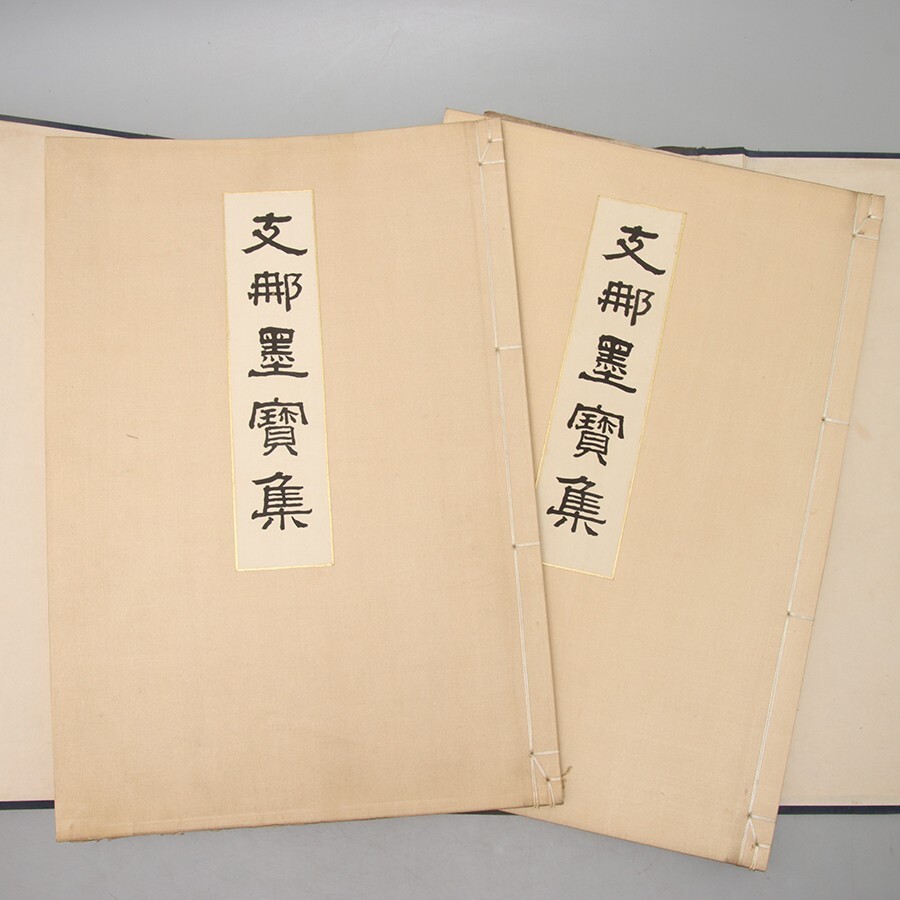 支那墨寶集
支那墨寶集